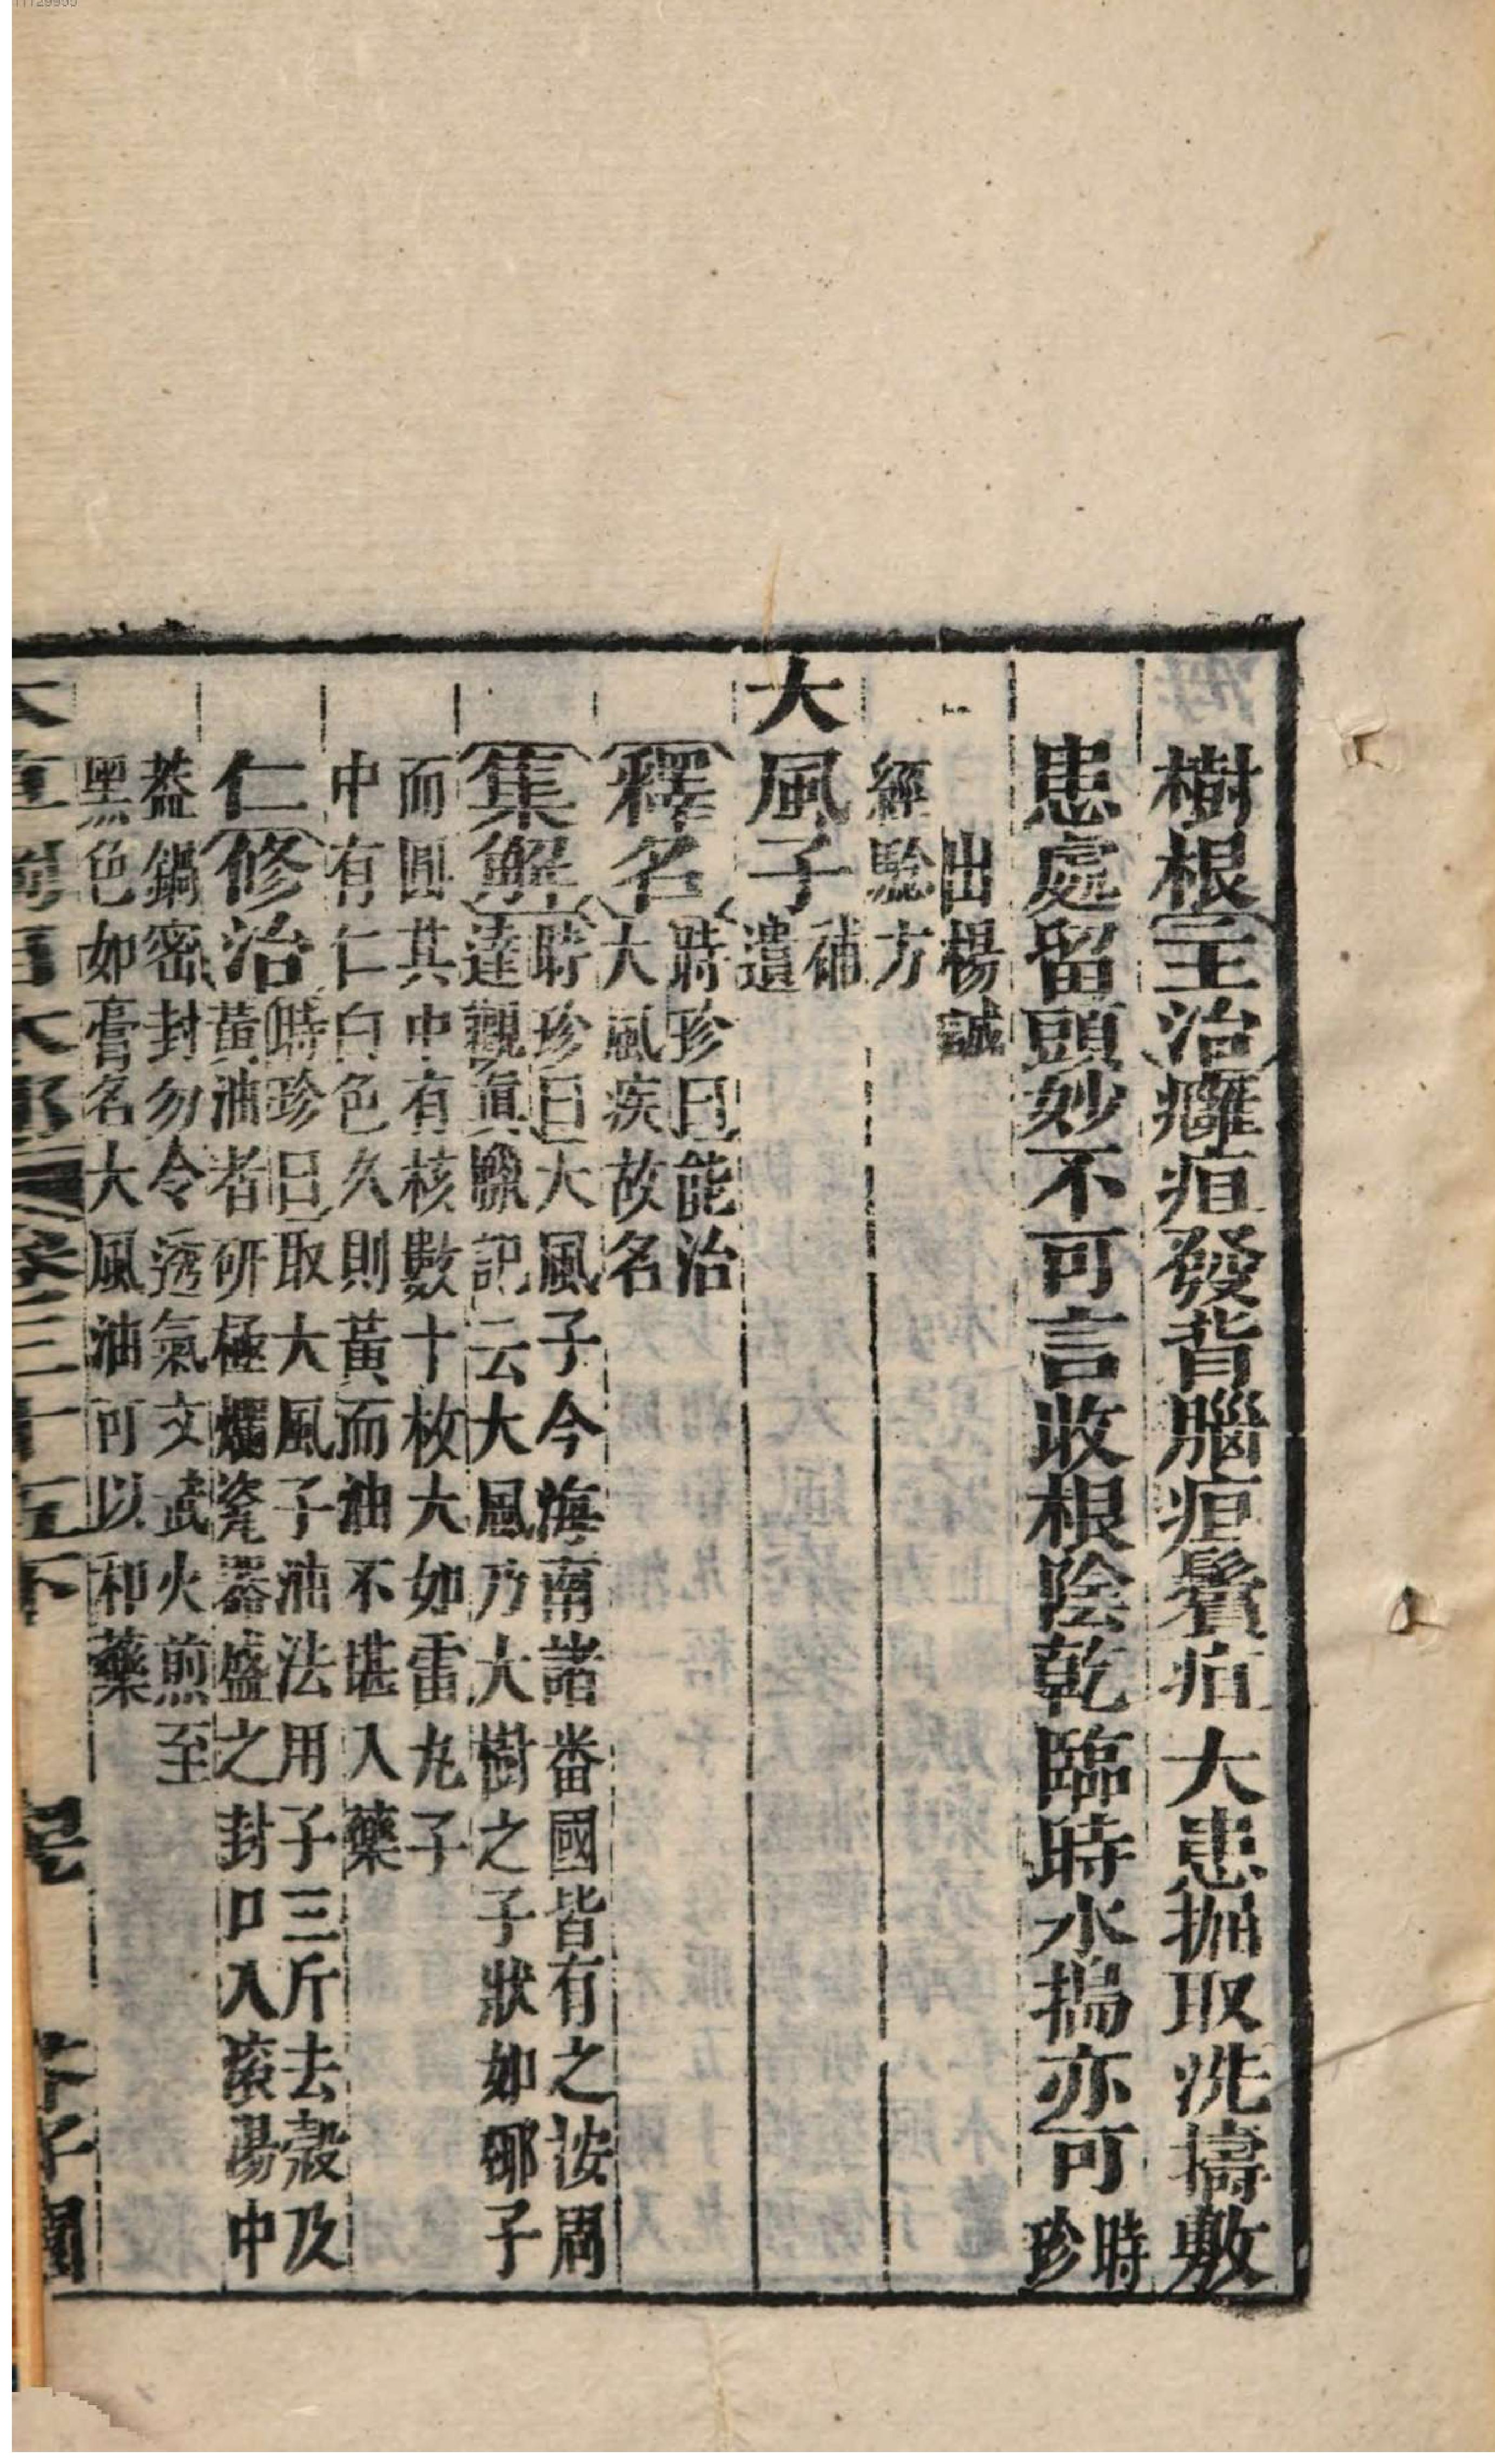 樹根主治癰疽發背腦疽鬢疽大患掘取洗擣敷
患處留頭妙不可言收根陰乾臨時水搗亦可時
珍
出楊誠
經驗方
大風子補
遺
釋名時珍曰能治
大風疾故名
集解時珍曰大風子今海南諸番國皆有之按周
達觀真臘記云大風乃大樹之子狀如椰子
而圓其中有核數十枚大如雷丸子
中有仁白色久則黃而油不堪入藥
仁修治時珍曰取大風子油法用子三斤去殼及
黃油者研極爛瓷器盛之封口入滾湯中
蓋鍋密封勿令透氣文武火煎至
黑色如膏名大風油可以和藥
卷三十五下